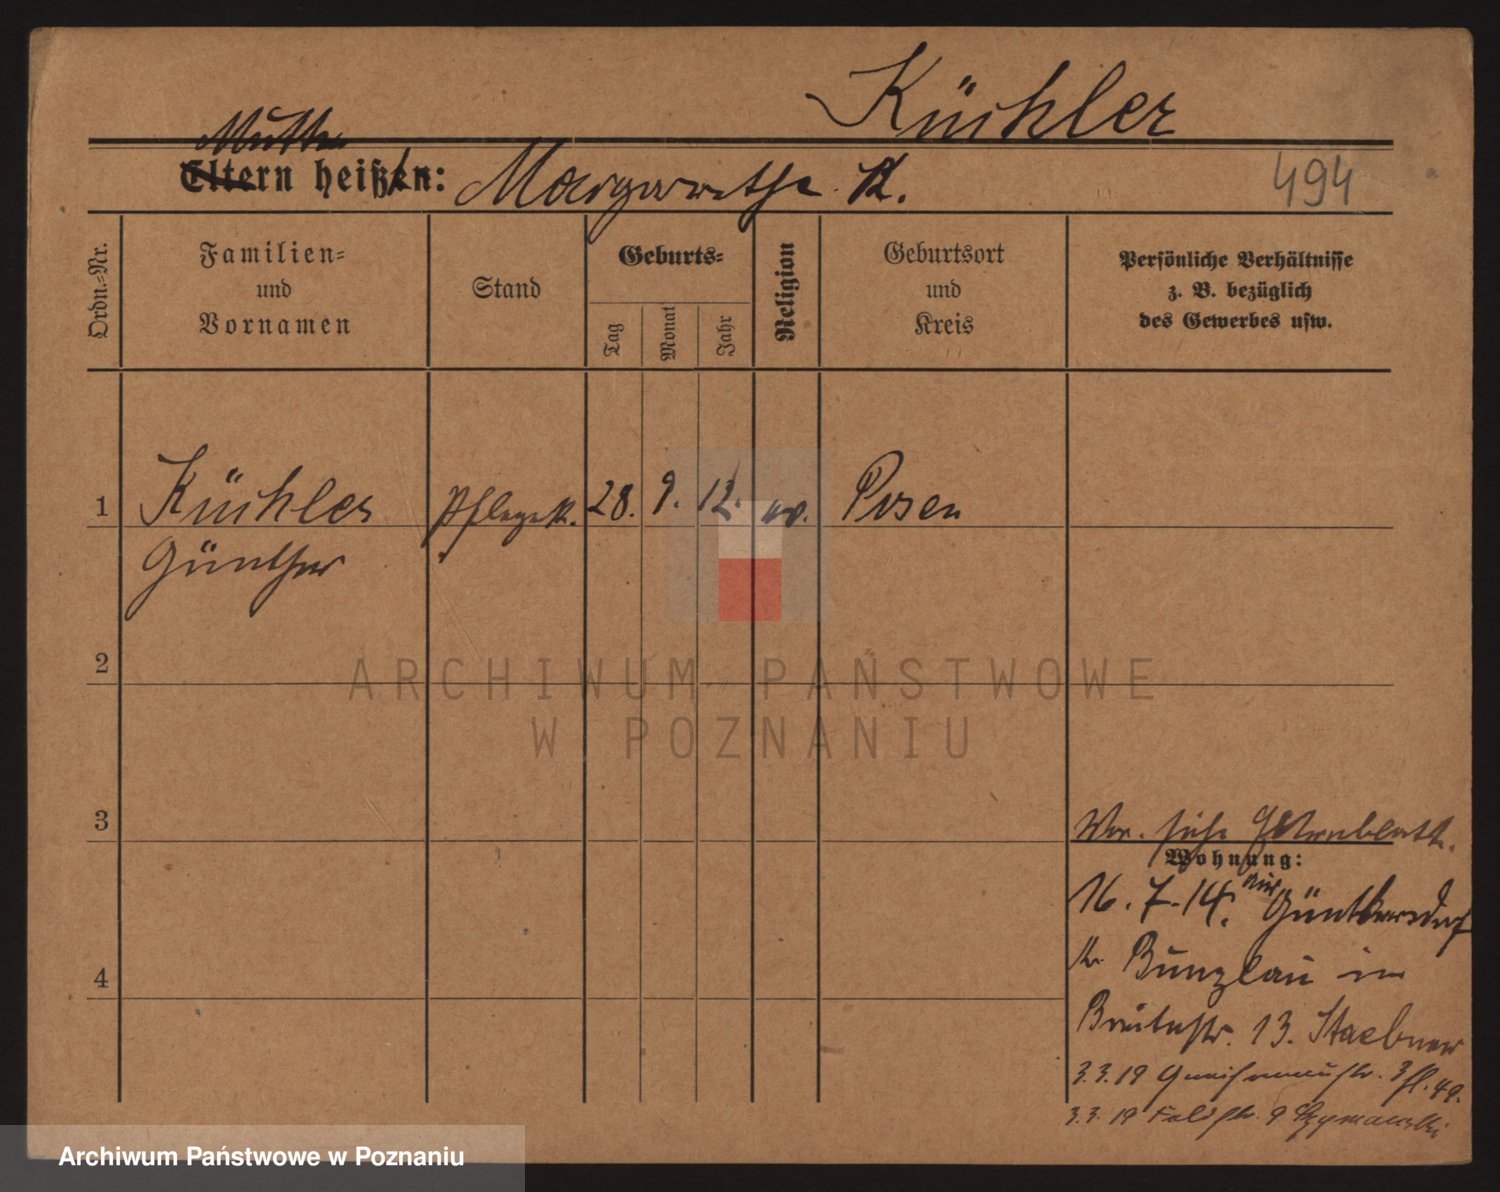 Küchler
Mutter
Eltern heißen: Margarethe K.
494
Ordn.-Nr.
Familien-
und
Vornamen
Stand
Geburts-
Tag
Monat
Jahr
Religion
Geburtsort
und
Kreis
Persönliche Verhältnisse
z. B. bezüglich
des Gewerbes usw.
1 Küchler Pflegek. 28. 9. 12. ev. Posen
Günther
2
ARCHIWUM PAŃSTWOWE
W POZNANIU
3
siehe Elternblatt.
Wohnung:
16. 7. 14. aus Günthersdorf
4
Kr. Bunzlau in
Breitestr. 13. Staebner
3.3.19 Gneisenaustr. 3
3.3.19 Feldstr. 9 Szymanski
Archiwum Państwowe w Poznaniu